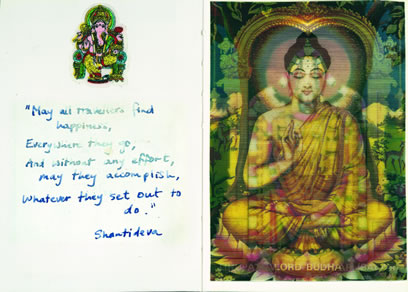 "May all travellers find
happiness,
Everywhere they go,
And without any effort,
may they accomplish,
Whatever they set out to
do."
Shantideva
LORD BUDHA